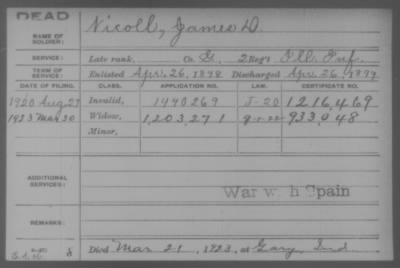 DEAD
NAME OF SOLDIER: Nicoll, James D.
SERVICE: Late rank, Co. G, 2 Reg't Ill. Inf.
TERM OF SERVICE: Enlisted Apr. 26, 1898 Discharged Apr. 26, 1899
DATE OF FILING. CLASS. APPLICATION NO. LAW. CERTIFICATE NO.
1920 Aug 27 Invalid, 1440269 J-20 1,216,469
1923 Mar 30 Widow, 1,203,271 933,048
Minor,
ADDITIONAL SERVICES:
War w h Spain
REMARKS:
Died Mar 21, 1923, at Gary, Ind.